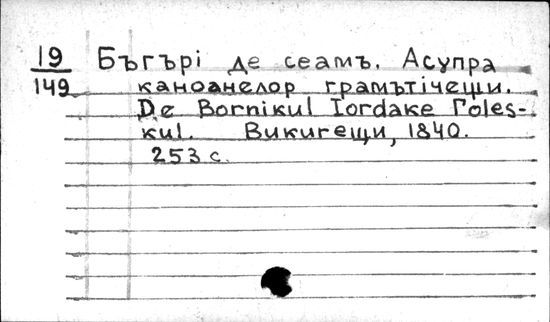 19
149
Бъгърі де сеамъ. Асупра
каноанелор граmътічещи.
De Bornikul Iordake Гoles-
kul. Викигещи, 1840.
253 с.